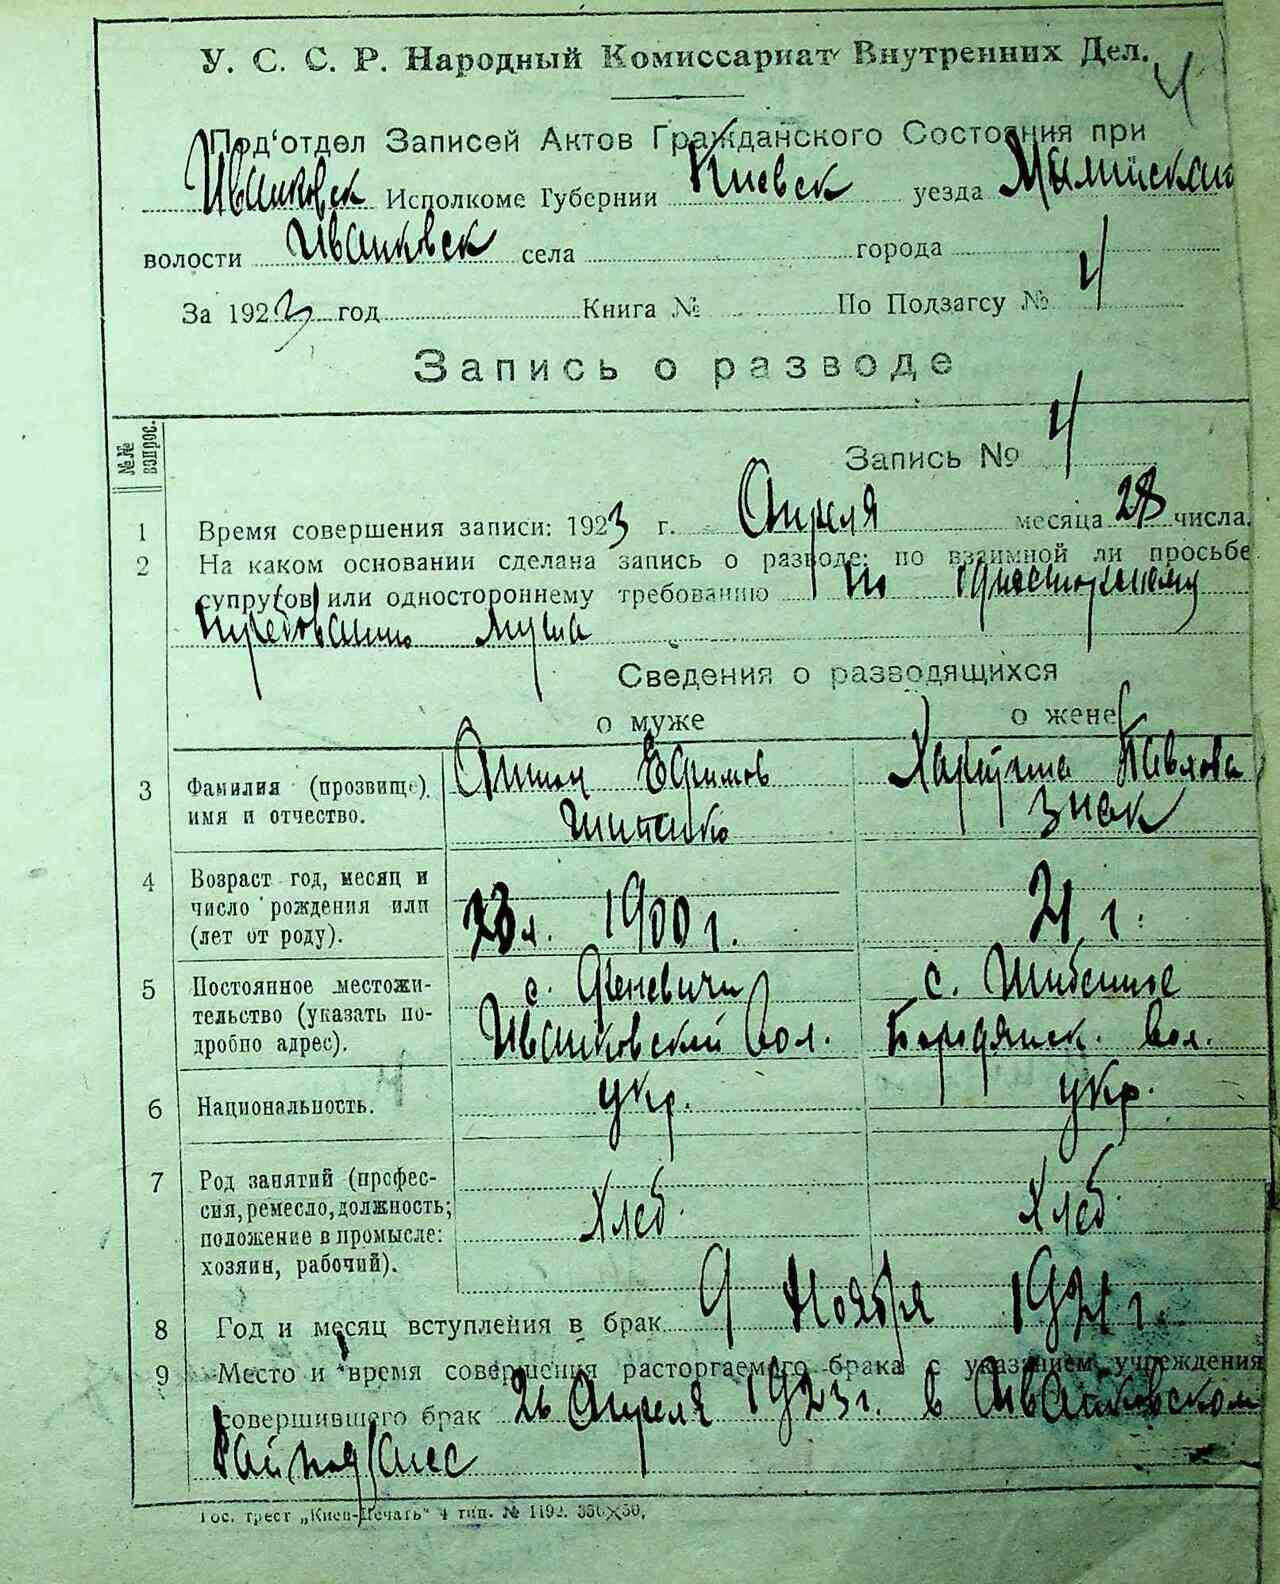 У. С. С. Р. Народный Комиссариат Внутренних Дел.
4
Под'отдел Записей Актов Гражданского Состояния при
Иванковск Исполкоме Губернии Киевск уезда
волости Иванковск села города
За 1923 год Книга № По Подзагсу № 4
Запись о разводе
№№ вопрос.
Запись № 4
1 Время совершения записи: 1923 г. Апреля месяца 28 числа.
2 На каком основании сделана запись о разводе: по взаимной ли просьбе
супругов или одностороннему требованию по одностороннему
требованию мужа
Сведения о разводящихся
о муже о жене
3 Фамилия (прозвище) имя и отчество.
Антон Ефимов
Харытина Павлова
Знак
4 Возраст год, месяц и
число рождения или
(лет от роду).
23 л. 1900 г.
21 г.
5 Постоянное местожи-
тельство (указать по-
дробно адрес).
с. Феневичи
Иванковский Вол.
с. Шибеное
Бородянск. Вол.
6 Национальность.
укр.
укр.
7 Род занятий (профес-
сия, ремесло, должность;
положение в промысле:
хозяин, рабочий).
Хлеб.
Хлеб.
8 Год и месяц вступления в брак 9 Ноября 1921 г.
9 Место и время совершения расторгаемого брака с указанием учреждения
совершившего брак 26 Апреля 1923 г. в Иванковском
Гос. трест „Киев-Печать" 4 тип. № 1192. 350×50,